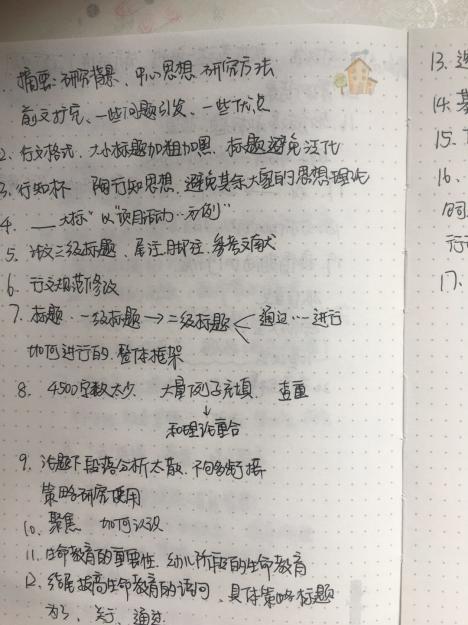 摘要: 研究背景、中心思想、研究方法
前文扩充、一些问题引发、一些优点
2. 行文格式、大小标题加粗加黑、标题避免泛化
3. 行知杯 陶行知思想、避免其余大家的思想理论
4. 大标“以“项目活动…为例”
5. 涉及三级标题、尾注、脚注、参考文献
6. 行文规范修改
7. 标题、一级标题→二级标题 通过……进行
如何进行的、整体框架
8. 4500字数太少、大量例子充填、查重
↓
和理论重合
9. 论题下段落分析太散、不够衔接
策略研究使用
10. 聚焦 如何谈议
11. 生命教育的重要性、幼儿阶段的生命教育
12. 结尾拔高生命教育的访问、具体策略标题
为了、关于、通过
13.
14.
15.
16.
17.